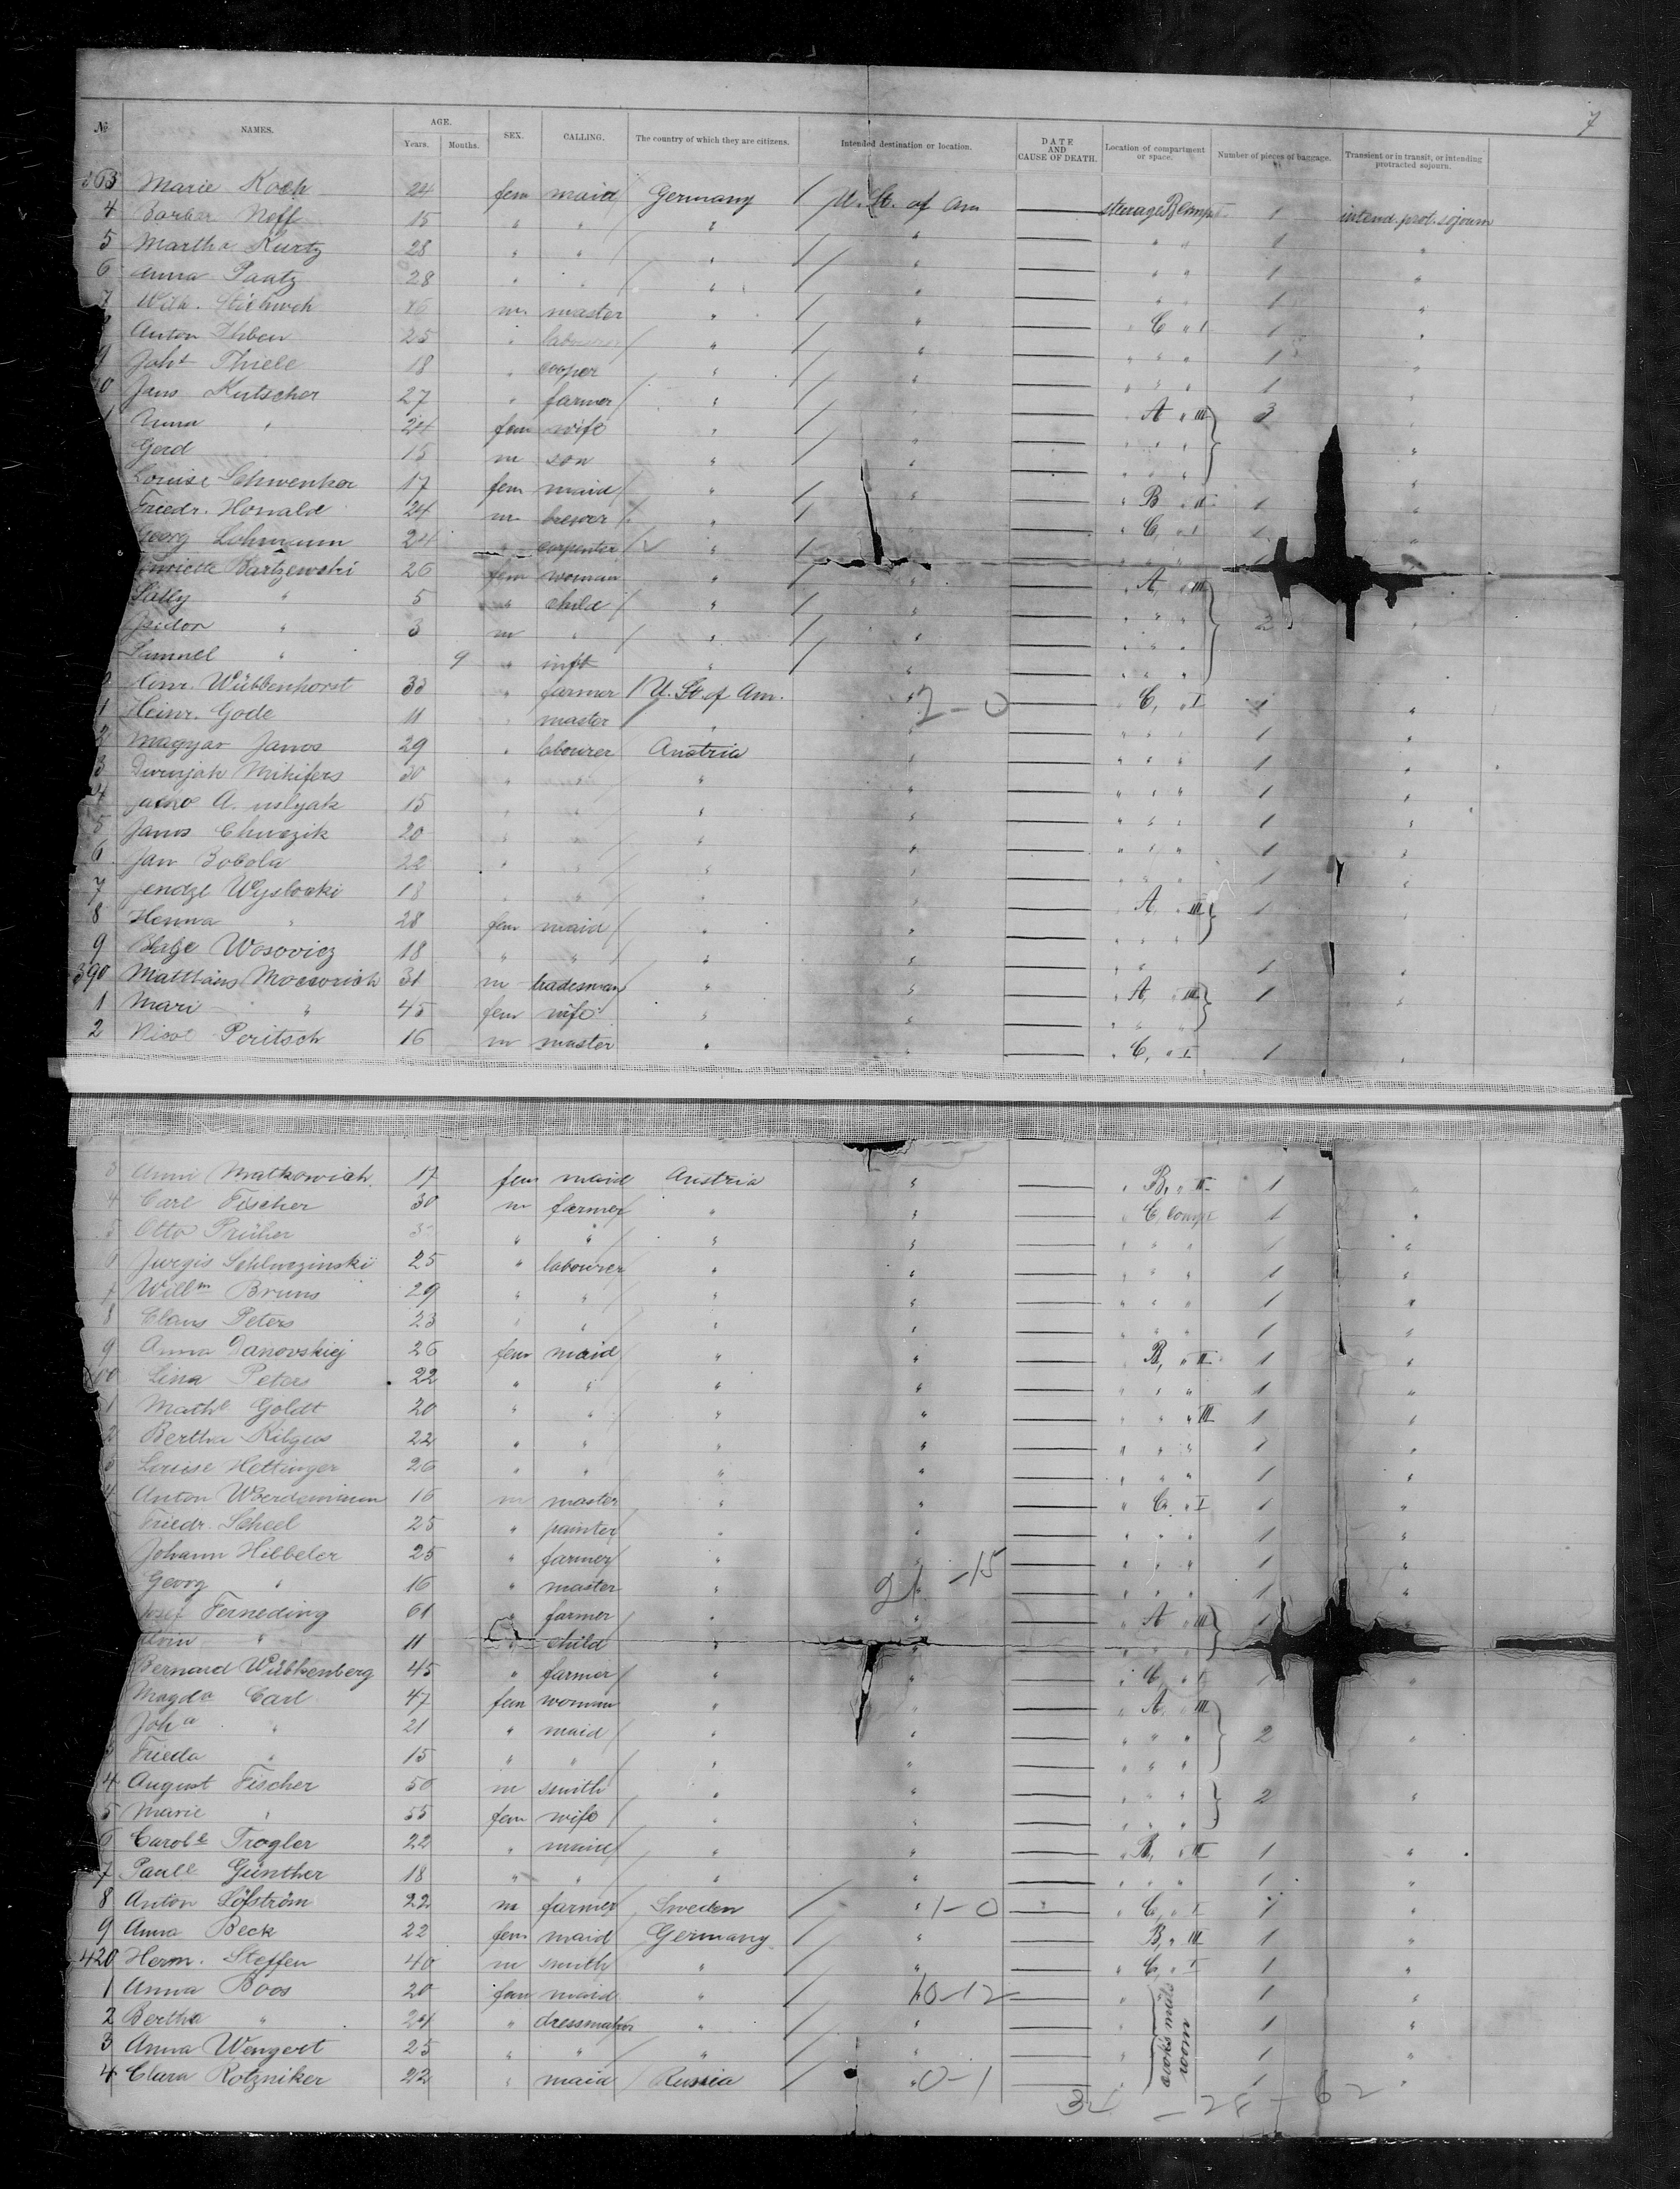 7
№ NAMES. AGE. Years. Months. SEX. CALLING. The country of which they are citizens. Intended destination or location. DATE AND CAUSE OF DEATH. Location of compartment or space. Number of pieces of baggage. Transient or in transit, or intending protracted sojourn.
363 Marie Koch 24 fem maid Germany U. St. of Am steerage B compt 1 intend. prot. sojourn
4 Barbar Neff 15 " " " " " " 1 "
5 Martha Kurtz 28 " " " " " " 1 "
6 Anna Paatz 28 " " " " " " 1 "
7 Wilh. 16 m. master " " " C " I 1 "
Anton Ihben 25 " labourer " " " " " 1 "
9 Joht Thiele 18 " cooper " " " " " 1 "
10 Jans Kutscher 27 " farmer " " " A " III 3 "
1 Anna " 24 fem wife " " " " "
Gerd 15 m son " " " " " "
Louise Schwenker 17 fem maid " " " B " II 1 "
Friedr. Howald 24 m brewer " " " C, " I 1 "
Georg Lohmann 24 " carpenter " " " " " 1
Henriette Bartzewski 26 fem woman " " " A, " III
Sally " 5 " child " " " " " 2 "
Isidor " 3 m " " " " " "
Samuel " 9 " inft " " " " "
Henr. Wübbenhorst 33 " farmer U. St. of Am. " 2-0 " C, " I 1 "
1 Heinr. Gode 11 " master " " " " " 1 "
2 Magyar Janos 29 " labourer Austria " " " " 1 "
3 Mihifers 30 " " " " " " " 1 "
4 A. 15 " " " " " " " 1 "
5 Janos Chuczik 20 " " " " " " " 1 "
6 Jan Bobola 22 " " " " " " " 1 "
7 Jendze Wyslocki 18 " " " " " A, " III 1 "
8 Henna " 28 fem maid " " " " "
9 Blaze Wosovicz 18 " " " " " " 1 "
390 Matthäus Mocsovich 31 m tradesman " " " A, " III 1 "
1 Mari " 45 fem wife " " " " "
2 Nicol Peritsch 16 m master " " " C, " I 1 "
3 Anni Malkowich. 17 fem maid Austria " " B, " II 1 "
4 Carl Fischer 30 m farmer " " " C, compt 1 "
5 Otto Prüher 3 " " " " " " " 1 "
6 Jurgis Schluczinski 25 " labourer " " " " " 1 "
7 Willm Bruns 29 " " " " " " " 1 "
8 Claus Peters 23 " " " " " " " 1 "
9 Anna Danovskiej 26 fem maid " " B, " II 1 "
400 Lina Peters 22 " " " " " " " 1 "
1 Mathe Goldt 20 " " " " " " III 1 "
2 Bertha Kilgus 22 " " " " " " " 1 "
3 Louise Hettinger 26 " " " " " " " 1 "
4 Anton Woerdemann 16 m master " " " C, " I 1 "
5 Friedr. Scheel 25 " painter " " " " " 1 "
Johann Hibbeler 25 " farmer " " " " " 1 "
Georg " 16 " master " 21-15 " " " 1 "
Josef Ferneding 61 " farmer " " " A " III 1 "
" 11 " child " " " " "
Bernard Wübkenberg 45 " farmer " " " C, " I 1 "
Magda Carl 47 fem woman " " " A, " III
Joha " 21 " maid " " " " " 2 "
3 Frieda " 15 " " " " " " "
4 August Fischer 50 m smith " " " " " 2 "
5 Marie " 55 fem wife " " " " "
6 Carole Trogler 22 " maid " " " B, " II 1 "
7 Paule Günther 18 " " " " " " " 1 "
8 Anton Löfström 22 m farmer Sweden " 1-0 " C, " I 1 "
9 Anna Beck 22 fem maid Germany " B, " III 1 "
420 Herm. Steffen 40 m smith " " " C, " I 1 "
1 Anna Boos 20 fem maid " 10-12 " 1 "
2 Bertha " 24 " dressmaker " " " 1 "
3 Anna Wengert 25 " " " " " 1 "
4 Clara Rotzniker 22 " maid Russia " 0-1 " 1 "
room
34 - 28 - 62